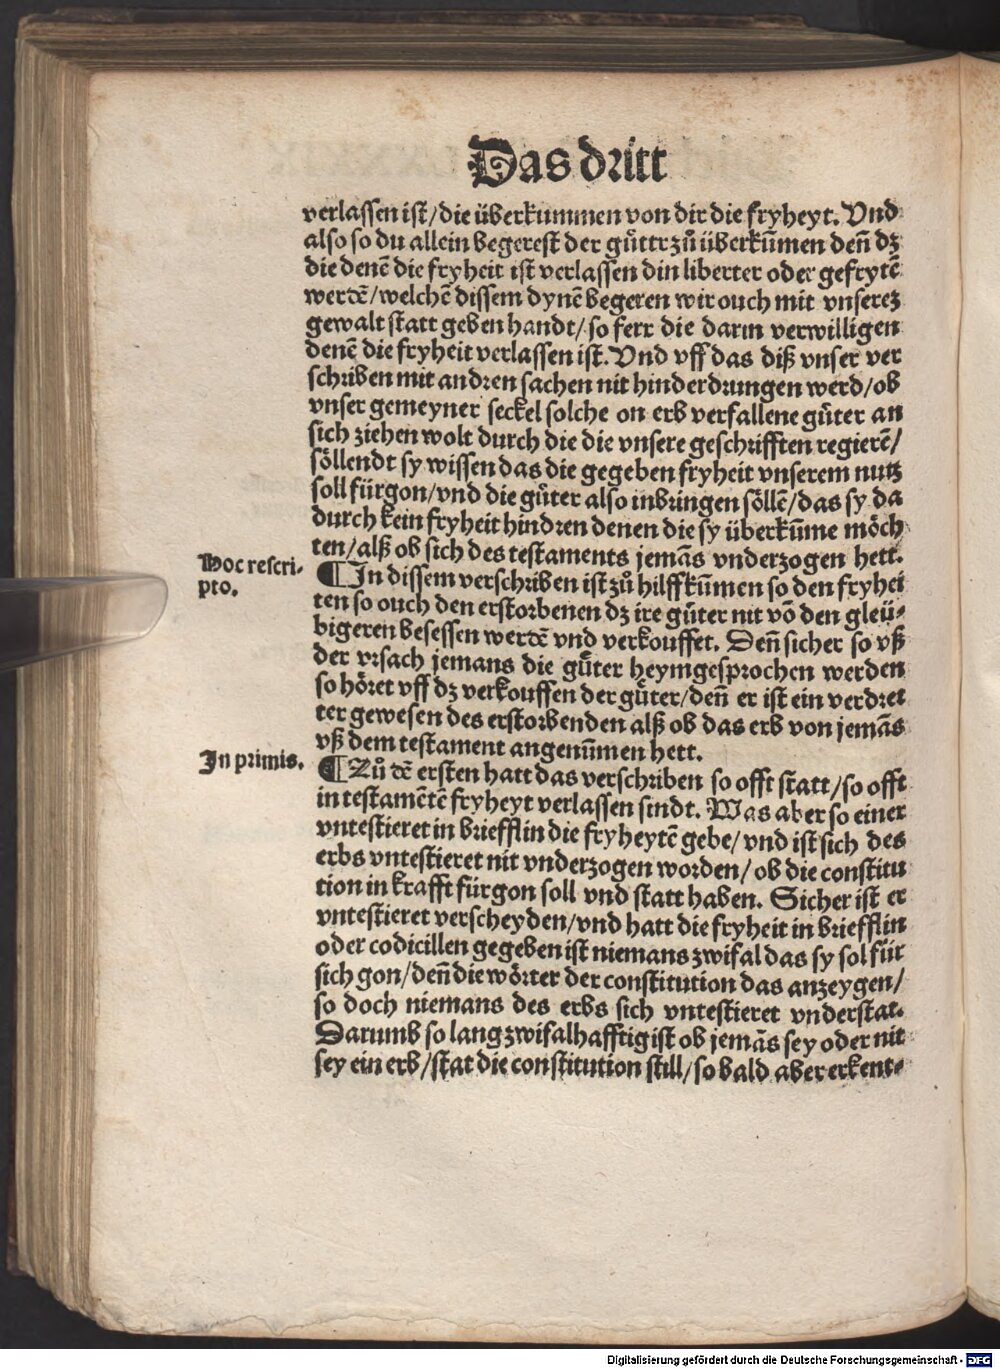 Das dritt
verlassen ist/die überkummen von dir die fryheyt. Vnd
also so du allein begerest der gůttr zů überkūmen deñ dz
die denē die fryheit ist verlassen din liberter oder gefrytē
wertē/welchē dissem dynē begeren wir ouch mit vnserez
gewalt statt geben handt/so ferr die darin verwilligen
denē die fryheit verlassen ist. Vnd vff das diß vnser ver
schriben mit andren sachen nit hinderdrungen werd/ob
vnser gemeyner seckel solche on erb verfallene gůter an
sich ziehen wolt durch die die vnsere geschrifften regierē/
söllendt sy wissen das die gegeben fryheit vnserem nutz
soll fürgon/vnd die gůter also inbringen söllē/das sy da
durch kein fryheit hindren denen die sy überkūme möch
ten/alß ob sich des testaments jemās vnderzogen hett.
Hoc rescri-
pto.
¶ In dissem verschriben ist zů hilff kūmen so den fryhei
ten so ouch den erstorbenen dz ire gůter nit vō den gleü-
bigeren besessen wertē vnd verkouffet. Deñ sicher so vß
der vrsach jemans die gůter heymgesprochen werden
so höret vff dz verkouffen der gůter/deñ er ist ein verdret
ter gewesen des erstorbenden alß ob das erb von jemās
vß dem testament angenūmen hett.
In primis.
¶ Zů dē ersten hatt das verschriben so offt statt/so offt
in testamētē fryheyt verlassen sindt. Was aber so einer
vntestieret in briefflin die fryheytē gebe/vnd ist sich des
erbs vntestieret nit vnderzogen worden/ob die constitu
tion in krafft fürgon soll vnd statt haben. Sicher ist er
vntestieret verscheyden/vnd hatt die fryheit in briefflin
oder codicillen gegeben ist niemans zwifal das sy sol für
sich gon/deñ die wörter der constitution das anzeygen/
so doch niemans des erbs sich vntestieret vnderstat.
Darumb so lang zwifalhafftig ist ob jemās sey oder nit
sey ein erb/stat die constitution still/so bald aber erkent-
Digitalisierung gefördert durch die Deutsche Forschungsgemeinschaft - DFG